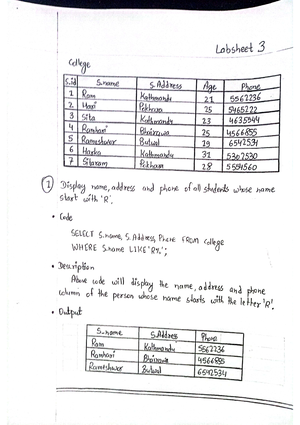 Labsheet 3
College
S.id S.name S.Address Age Phone
1 Ram Kathmandu 21 5562236
2 Hari Pokhara 25 5465222
3 Sita Kathmandu 23 4635544
4 Ramhari Bhairawa 25 4566855
5 Rameshwar Butwal 29 6542531
6 Harka Kathmandu 31 5302530
7 Sitaram Pokhara 28 5554560
1 Display name, address and phone of all students whose name
start with 'R'.
• Code
SELECT S.name, S.Address, Phone FROM College
WHERE S.name LIKE 'R%';
• Description
Above code will display the name, address and phone
column of the person whose name starts with the letter 'R'.
• Output
S.name S.Address Phone
Ram Kathmandu 5562236
Ramhari Bhairawa 4566855
Rameshwar Butwal 6542534